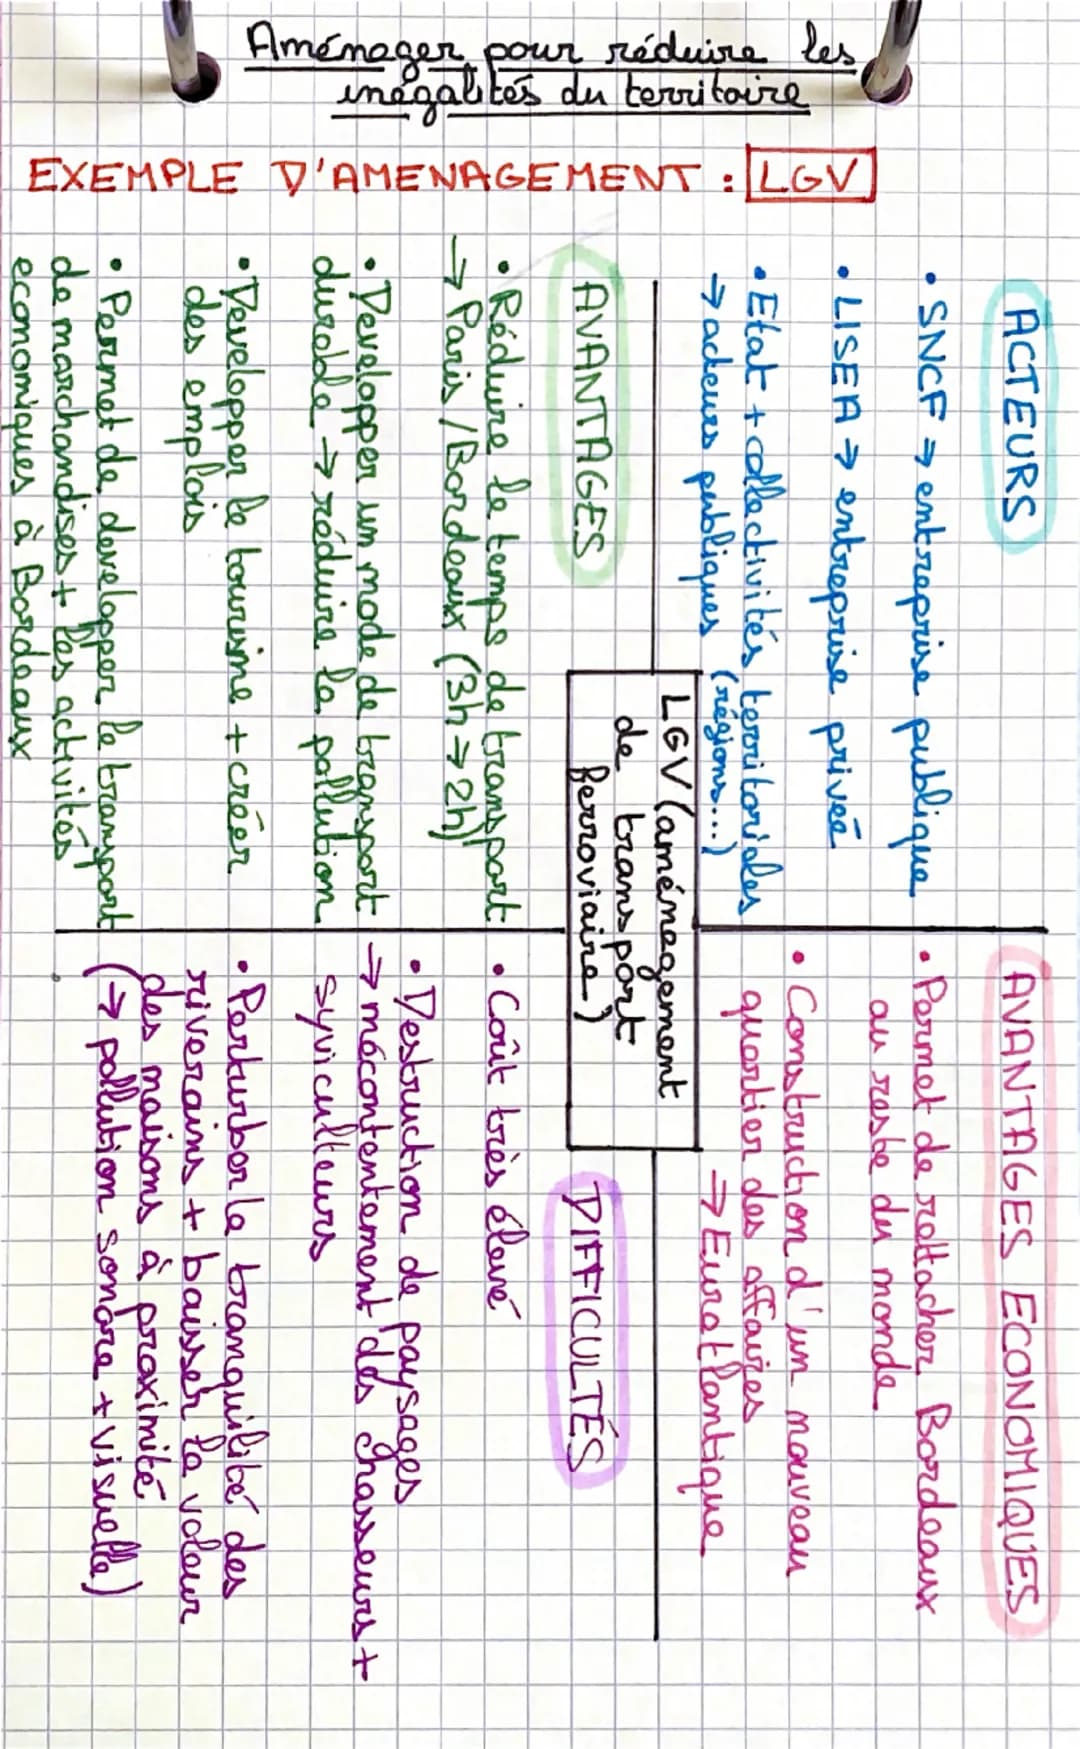 Aménager pour réduire les
inégalités du territoire
EXEMPLE D'AMENAGEMENT : LGV
ACTEURS
• SNCF → entreprise publique
• LISEA → entreprise privée
• Etat + collectivités territoriales
→ acteurs publiques (régions...)
AVANTAGES ECONOMIQUES
• Permet de rattacher Bordeaux
au reste du monde
• Construction d'un nouveau
quartier des affaires
→ Euratlantique
LGV (aménagement
de transport
ferroviaire)
AVANTAGES
• Réduire le temps de transport
→ Paris / Bordeaux (3h → 2h)
• Developper un mode de transport
durable → réduire la pollution
• Developper le tourisme + créer
des emplois
• Permet de developper le transport
de marchandises + les activités
economiques à Bordeaux
DIFFICULTÉS
• Coût très élevé
• Destruction de paysages
→ mécontentement des chasseurs +
sylviculteurs
• Perturber la tranquilité des
riverains + baisser la valeur
des maisons à proximité
(→ pollution sonore + visuelle)